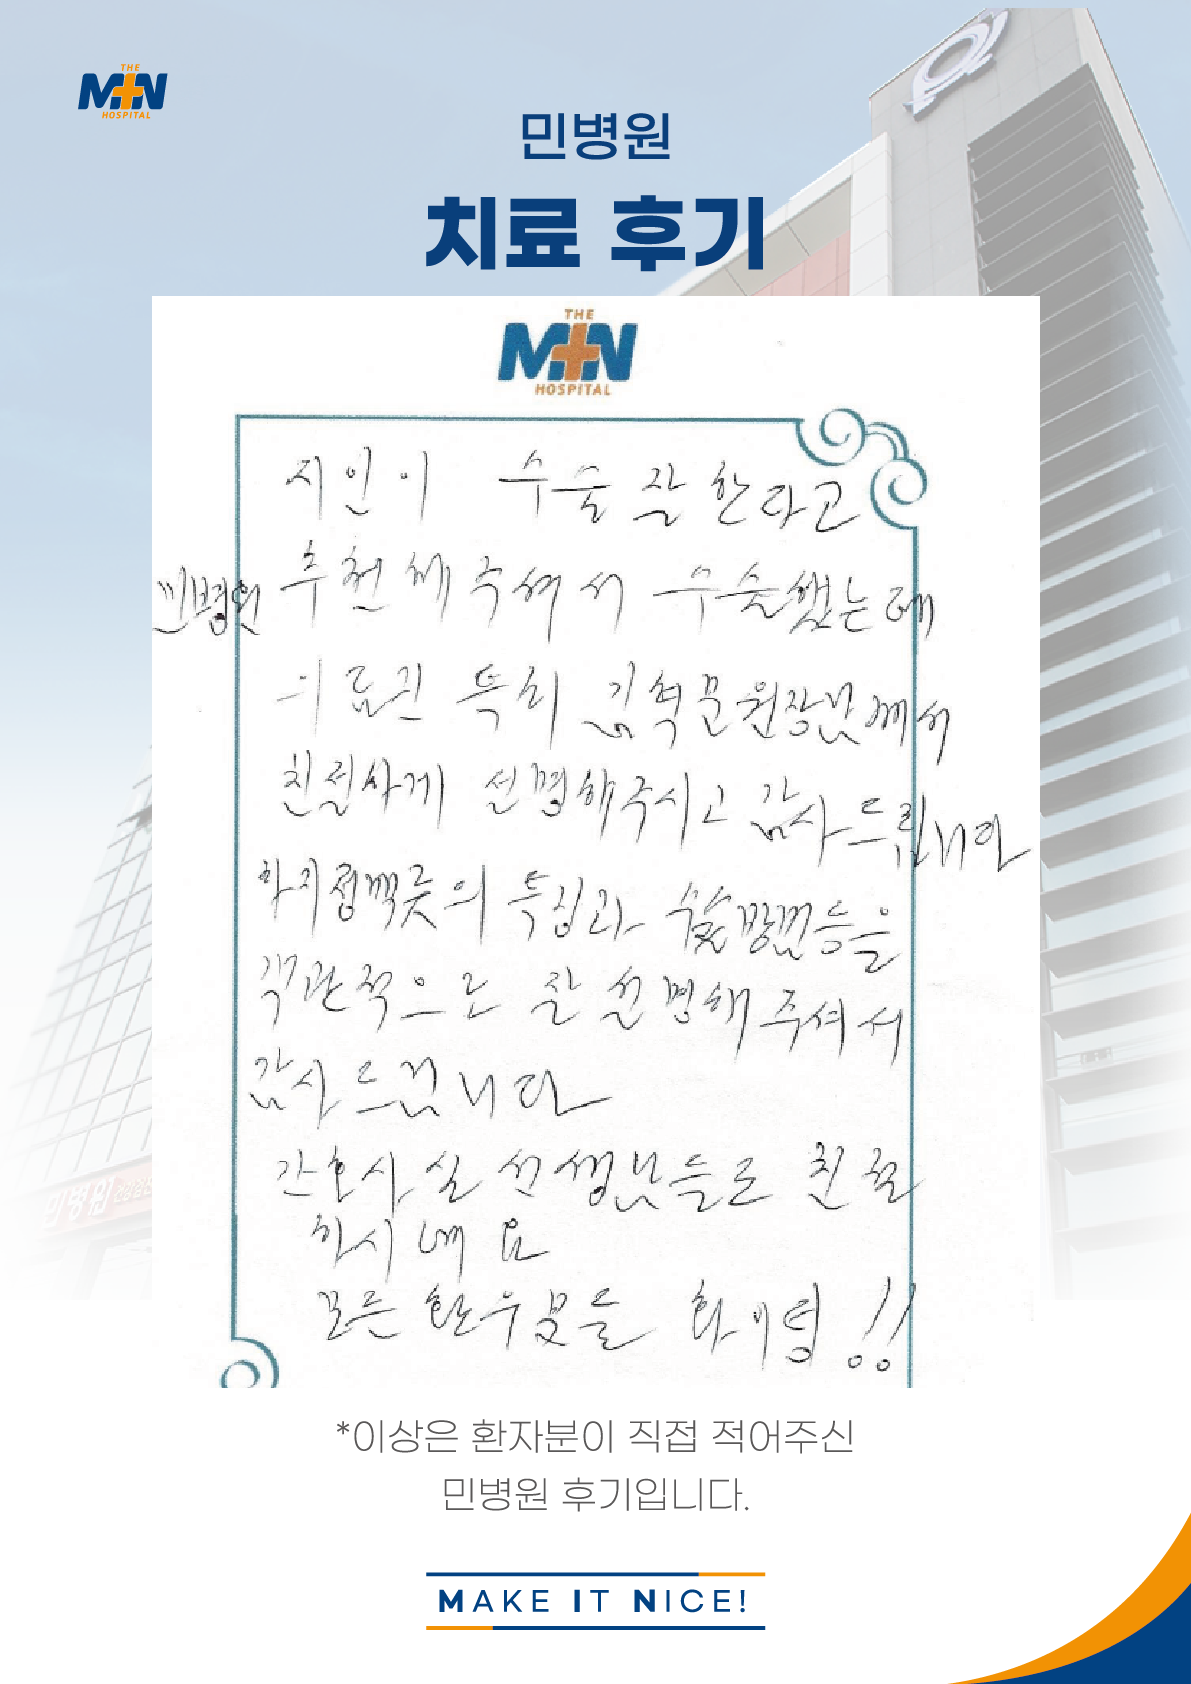 THE
MIN
HOSPITAL
민병원
치료 후기
THE
MIN
HOSPITAL
지인이 수술 잘 한다고
민병원 추천해주셔서 수술했는데
의료진 특히 김혁문원장님께서
친절하게 설명해주시고 감사드립니다
하지정맥류의 특징과 수술방법등을
객관적으로 잘 설명해주셔서
감사드립니다
간호사실 선생님들도 친절
하시네요
모든 환우분들 화이팅!!
*이상은 환자분이 직접 적어주신
민병원 후기입니다.
MAKE IT NICE!